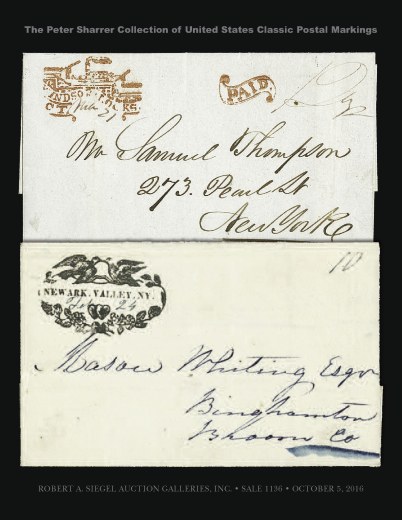 The Peter Sharrer Collection of United States Classic Postal Markings
PAID
Mr Samuel Thompson
273. Pearl St
New York
10
NEWARK. VALLEY. NY.
Feb 24
Mason Whiting Esqr
Binghamton
Broom Co
ROBERT A. SIEGEL AUCTION GALLERIES, INC. • SALE 1136 • OCTOBER 5, 2016